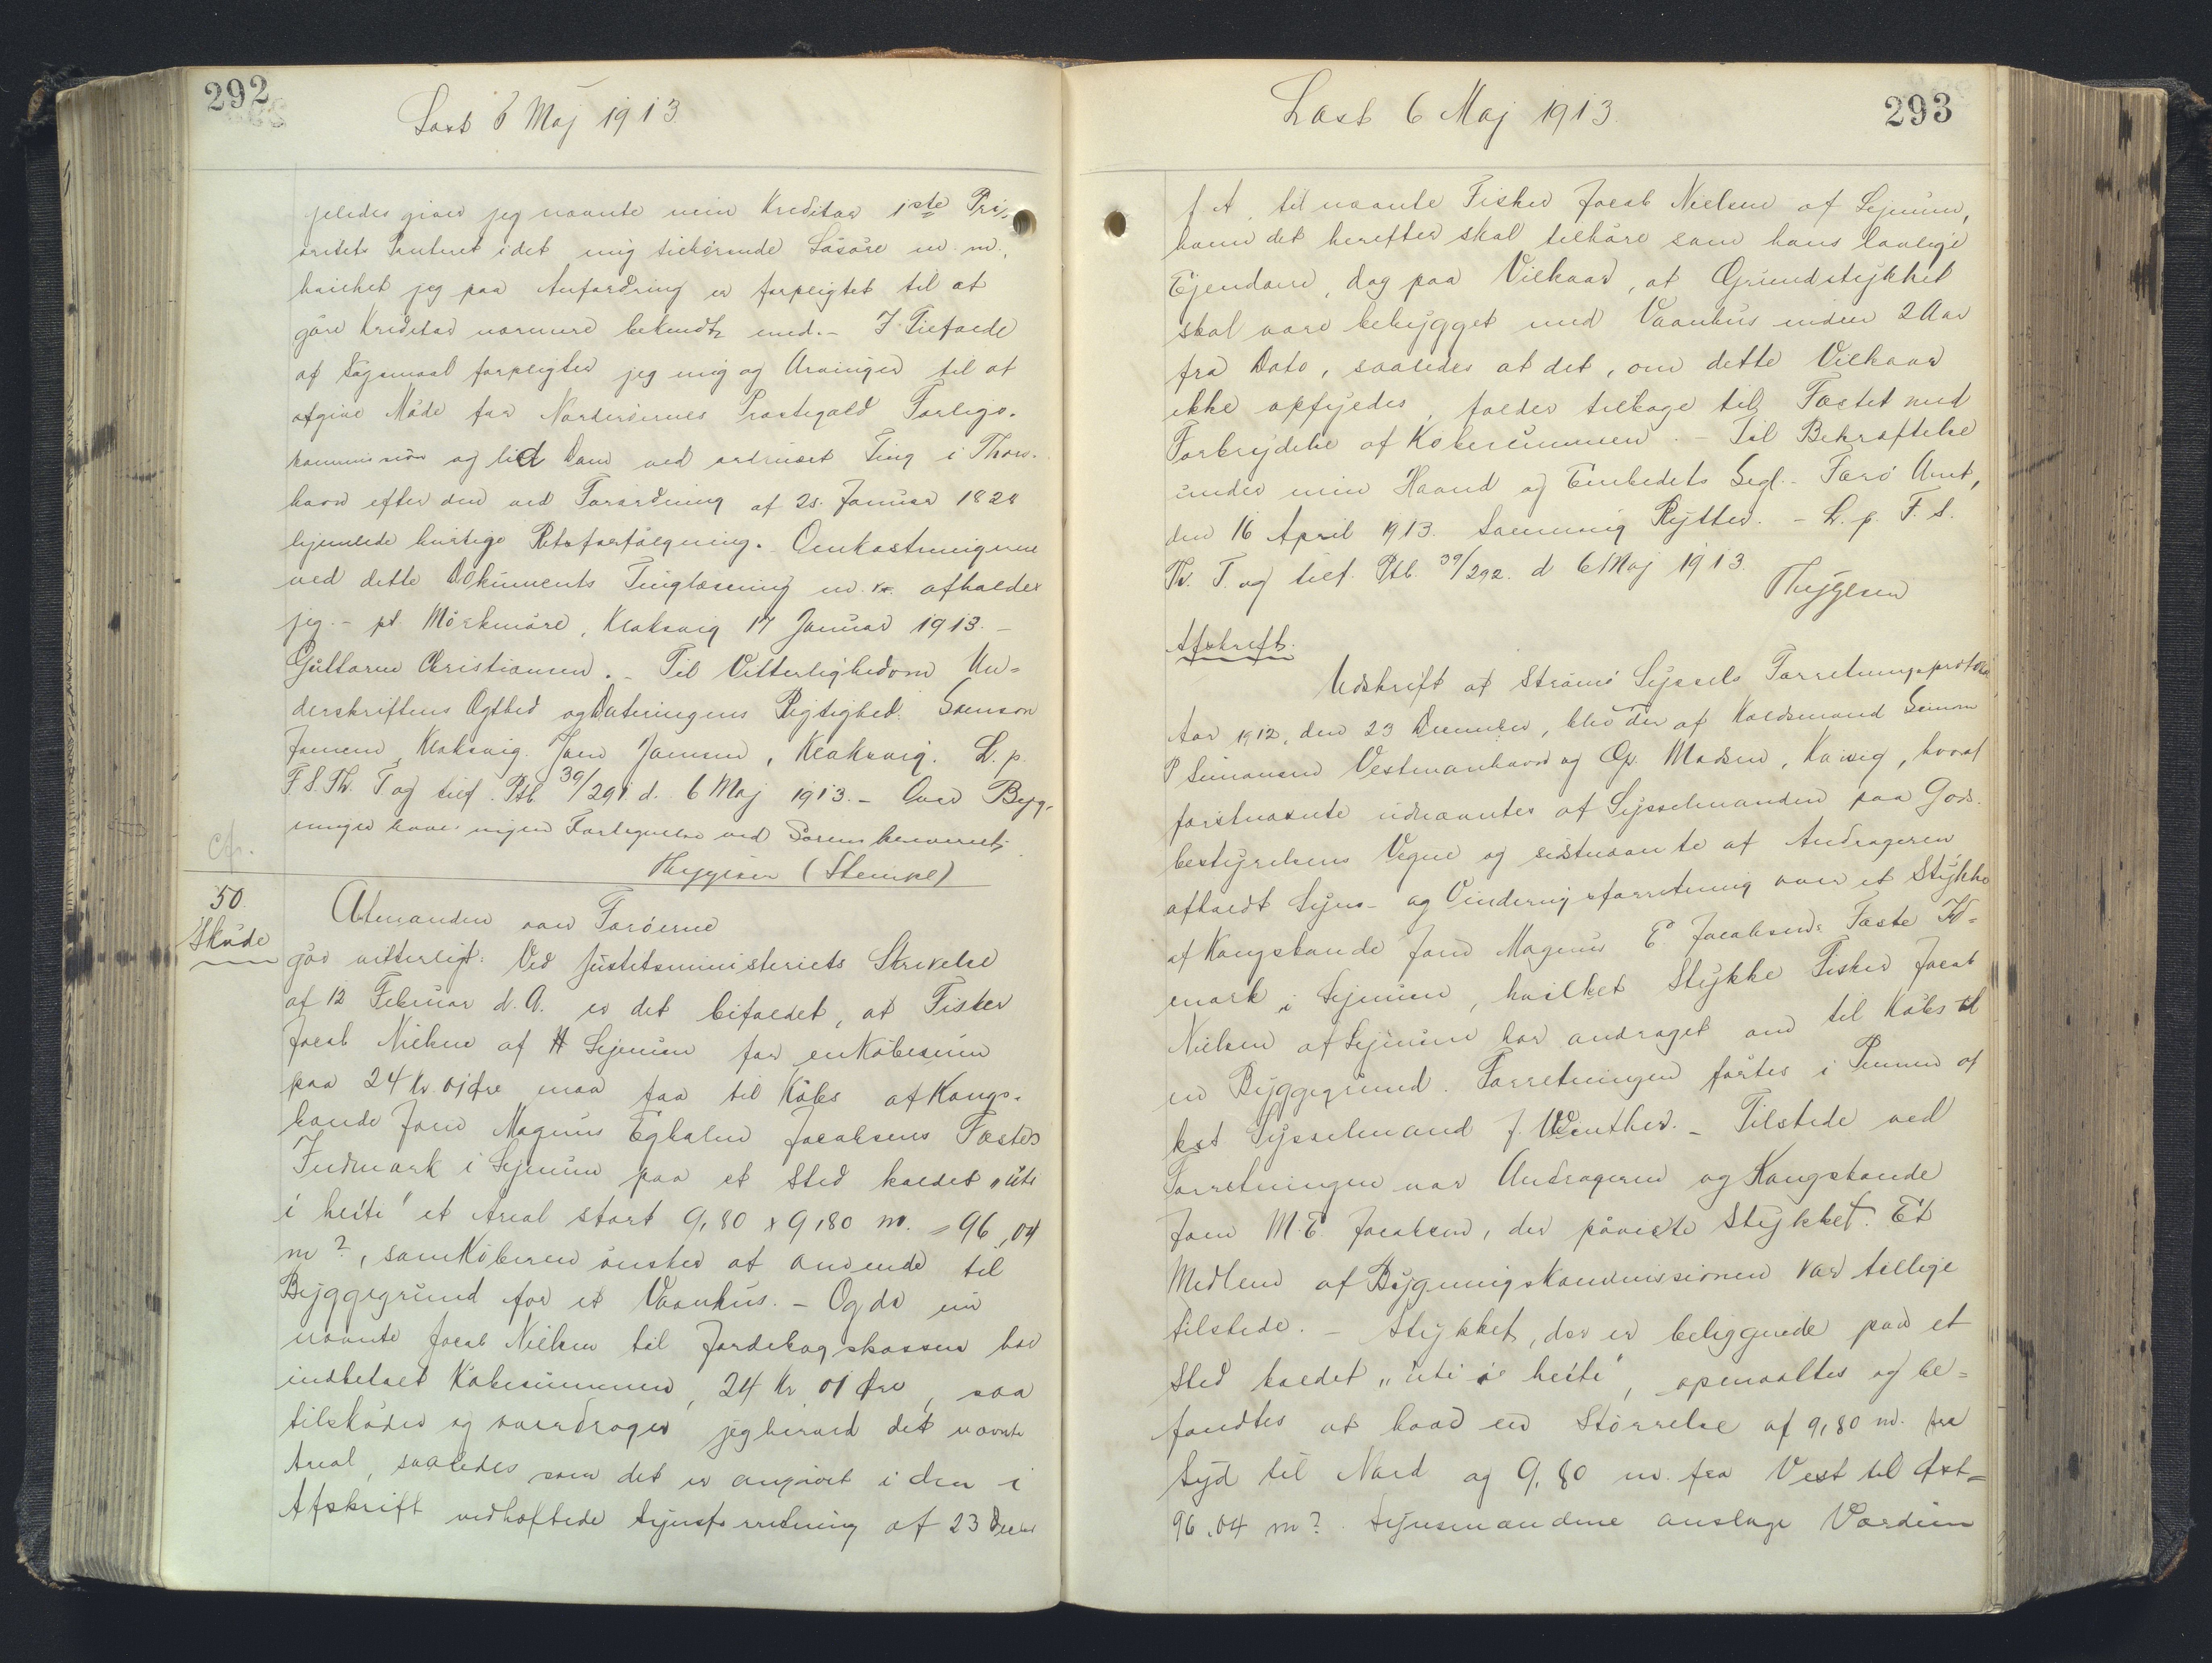 292
Læst 6 Maj 1913
jeledes giver jeg nævnte min Kreditor 1ste Pri-
oritets Panteret i det mig tilhørende Løsøre m. m.,
hvilket jeg paa Anfordring er forpligtet til at
gøre Kreditor nærmere bekendt med. – I Tilfælde
af Søgsmaal forpligter jeg mig og Arvinger til at
afgive Møde for Norderøernes Præstegæld Forligs-
kommission og lid Dom ved ordinært Ting i Thors-
havn efter den ved Forordning af 25. Januar 1828
hjemlede hurtige Retsforfølgning. Omkostningerne
ved dette Dokuments Tinglæsning m. v. afholder
jeg. – pt. Mörkmøre, Klaksvig 17 Januar 1913. –
Guttorm Christiansen. – Til Vitterlighed om Un-
derskriftens Ægthed og Dateringens Rigtighed: Samson
Joensen, Klaksvig. Joen Joensen, Klaksvig. L. p.
F. S. Th. T og tilf. Ptb. 39/291 d. 6 Maj 1913. – Over Byg-
ninger haves ingen Fortegnelse ved Sorenskriveriet
Thygesen (Stempel)
cfr.
50.
Skøde
Amtmanden over Færøerne
gør vitterligt: Ved Justitsministeriets Skrivelse
af 12 Februar d. A. er det bifaldet, at Fisker
Jacob Nielsen af Sejnum for en Købesum
paa 24 Kr. 01 Øre maa faa til Købs af Kongs-
bonde Joen Magnus Egholm Jacobsens Fæstes
Indmark i Sejnum paa et Sted kaldet "úti
í heiti" et Areal stort 9,80 x 9,80 m. = 96,04
m², som Køberen ønsker at anvende til
Byggegrund for et Vaanhus. – Og da nu
nævnte Jacob Nielsen til Jordebogskassen har
indbetalt Købesummen, 24 Kr. 01 Øre, saa
tilskøder og overdrager jeg herved det nævnte
Areal, saaledes som det er angivet i den i
Afskrift vedhæftede Synsforretning af 23 Decber
293
Læst 6 Maj 1913.
f. A., til nævnte Fisker Jacob Nielsen af Sejnum,
ham det herefter skal tilhøre som hans lovlige
Ejendom, dog paa Vilkaar, at Grundstykket
skal være bebygget med Vaanhus inden 2 Aar
fra Dato, saaledes at det, om dette Vilkaar
ikke opfyldes, falder tilbage til Fæstet med
Forbrydelse af Købesummen. – Til Bekræftelse
under min Haand og Embedets Segl. – Færø Amt,
den 16 April 1913. Svenning Rytter. – L. p. F. S.
Th. T. og tilf. Ptb. 39/292. d 6 Maj 1913.
Thygesen
Afskrift.
Udskrift af Strømø Syssels Forretningsprotokol
Aar 1912, den 23 December, blev der af Koldsmand Simon
P Simonsen Vestmanhavn og Op. Madsen, Kvivig, hvoraf
førstnævnte udnævntes af Sysselmanden paa Gods-
bestyrelsens Vegne og sidstnævnte af Andrageren
afholdt Syns- og Vurderingsforretning over et Stykke
af Kongsbonde Joen Magnus E. Jacobsens Fæste Ind-
mark i Sejnum, hvilket Stykke Fisker Jacob
Nielsen af Sejnum har andraget om til Købs til
en Byggegrund. Forretningen førtes i Pennen af
kst Sysselmand J. Winther. – Tilstede ved
Forretningen var Andrageren og Kongsbonde
Joen M. E. Jacobsen, der påviste Stykket. Et
Medlem af Bygningskommissionen var tillige
tilstede. – Stykket, der er beliggende paa et
Sted kaldet "úti í heiti", opmaaltes og be-
fandtes at have en Størrelse af 9,80 m. fra
Syd til Nord og 9,80 m. fra Vest til Øst =
96,04 m². Synsmændene anslage Værdien